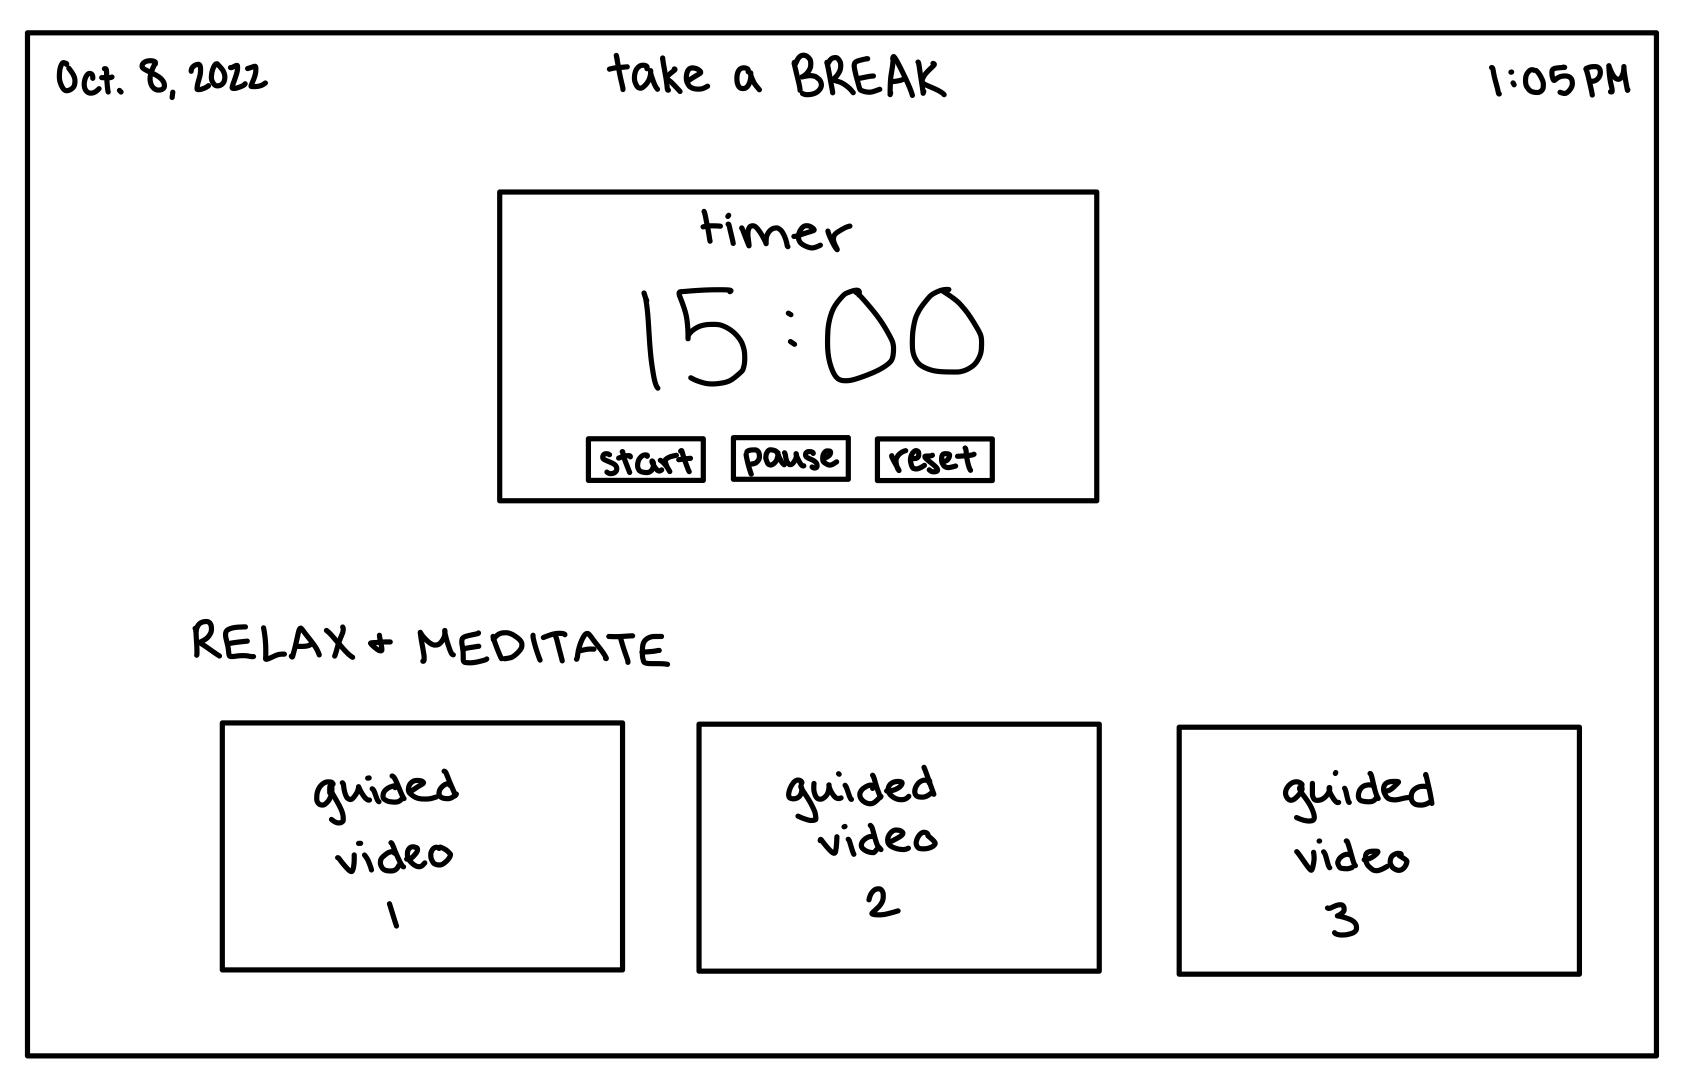 Oct. 8, 2022
take a BREAK
1:05 PM
timer
15:00
start
pause
reset
RELAX + MEDITATE
guided
video
1
guided
video
2
guided
video
3